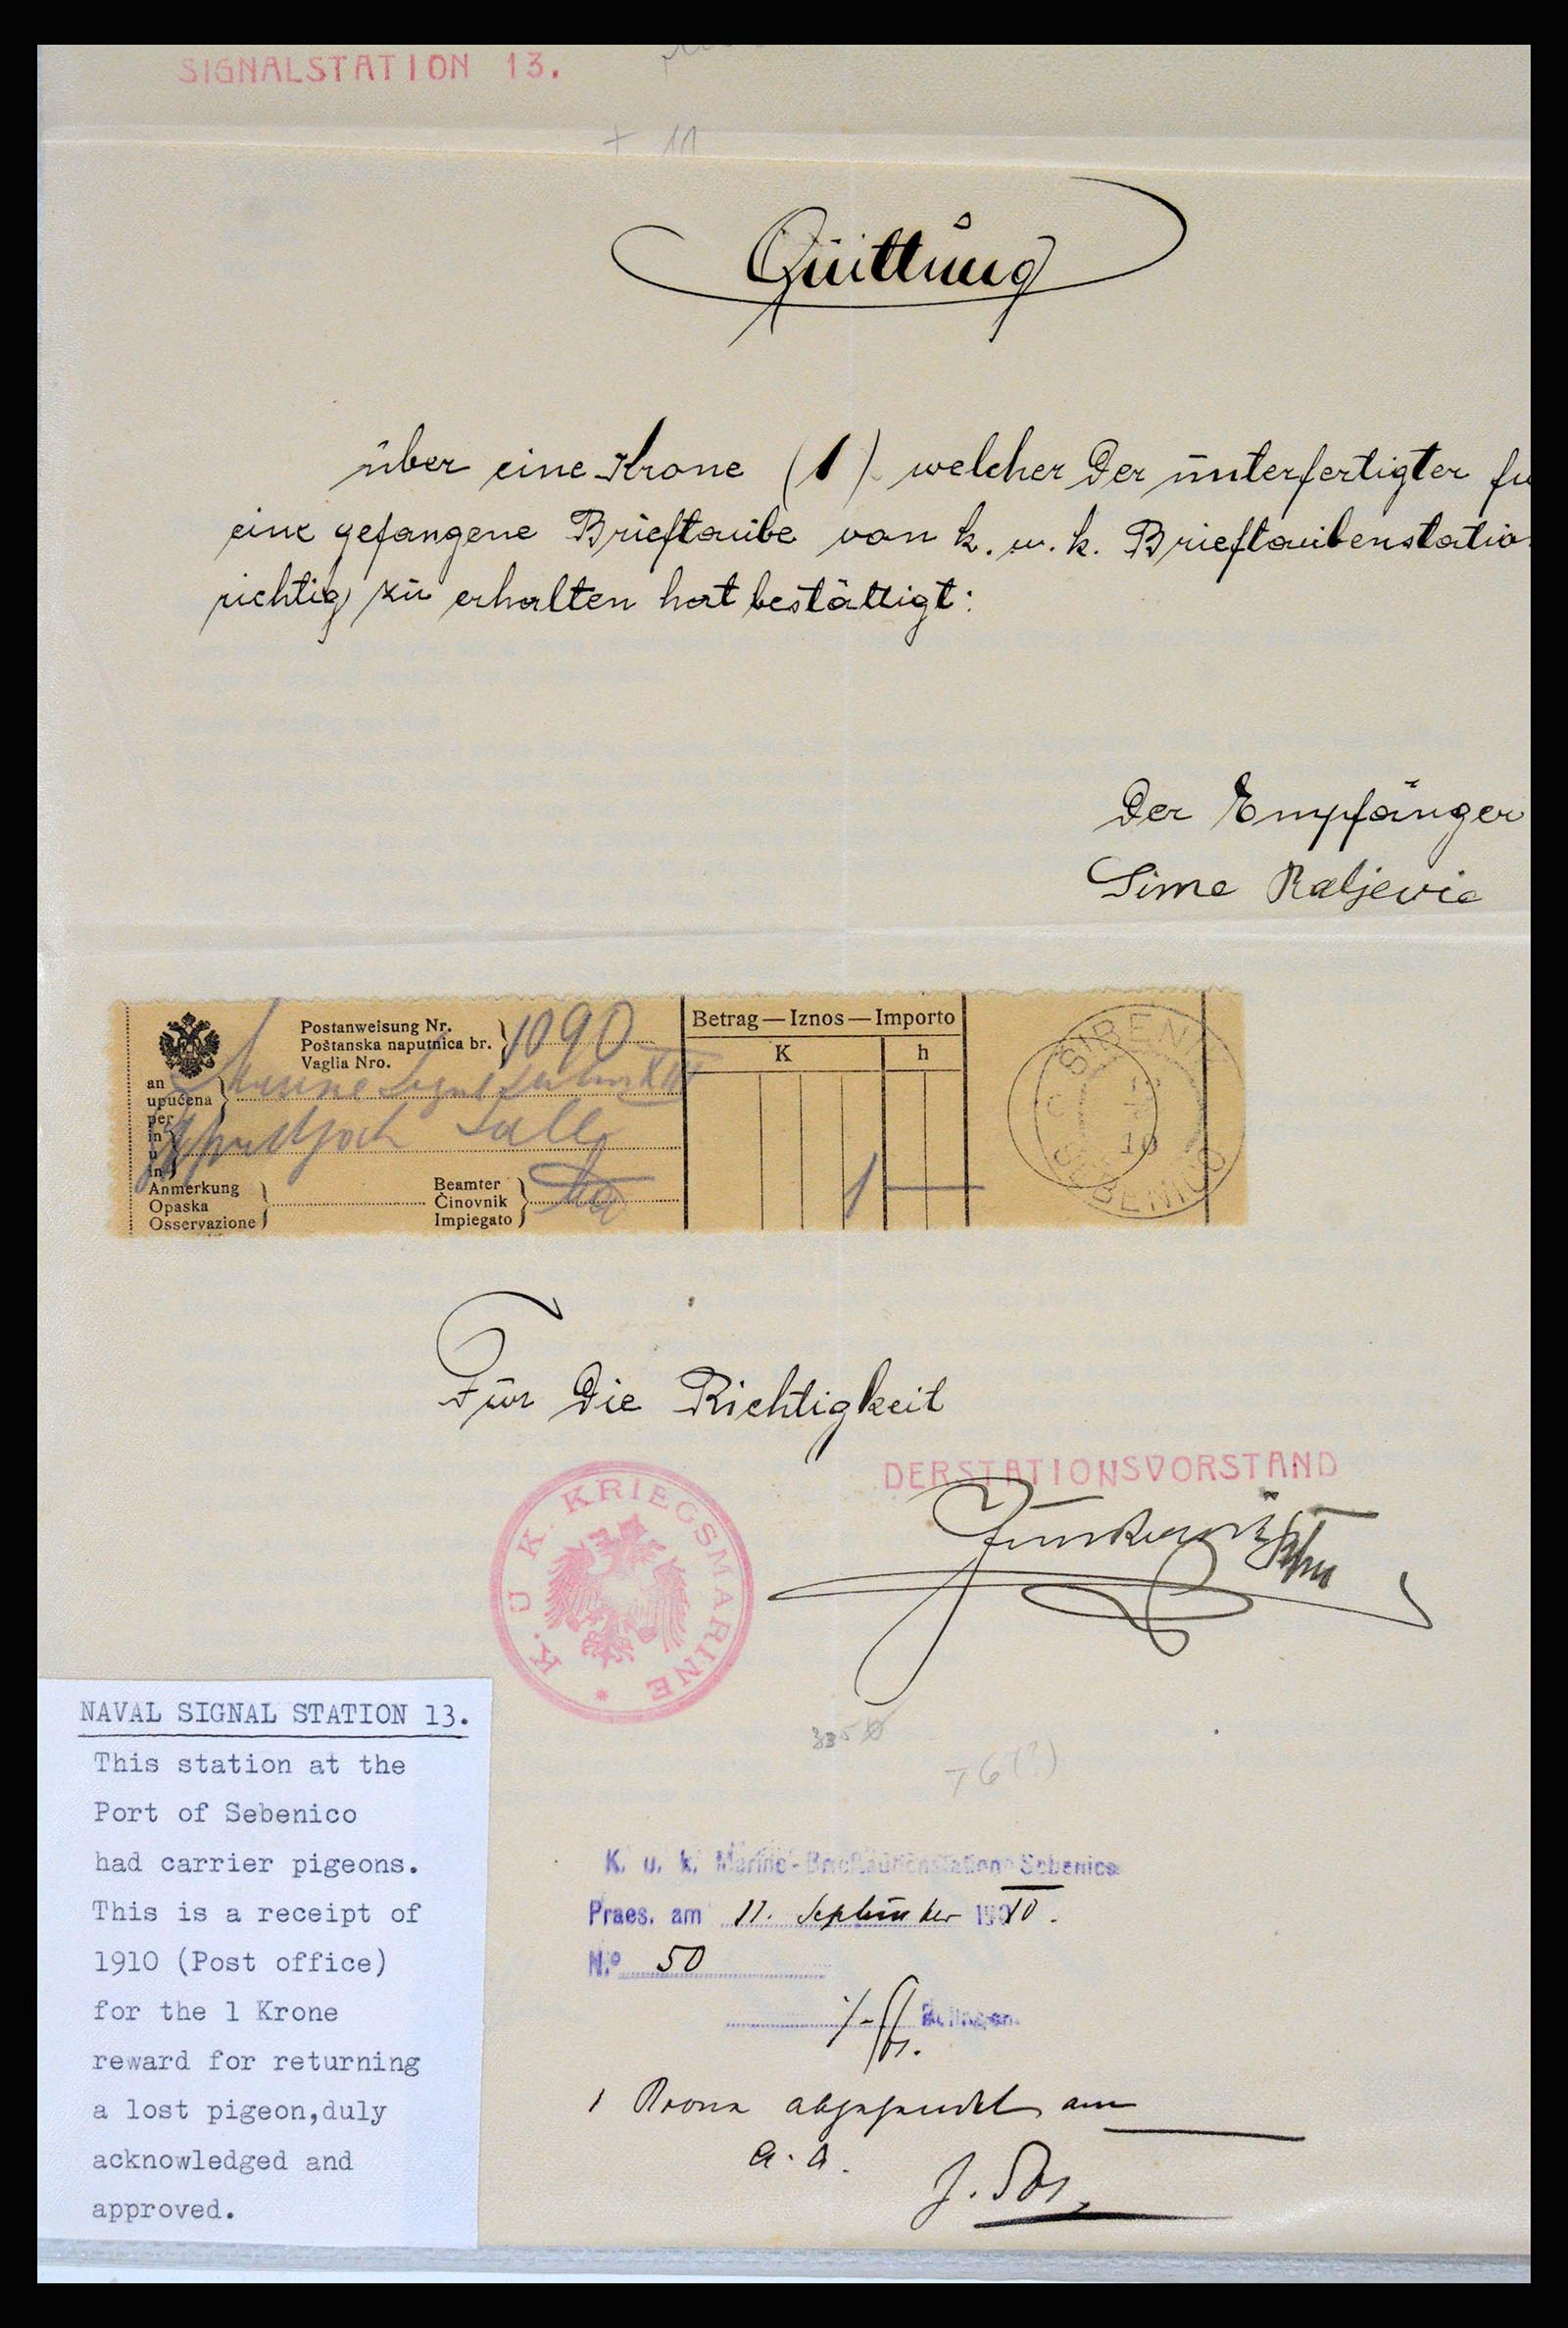 SIGNALSTATION 13.
+ 11
Quittung
über eine Krone (1) welcher der unterfertigter fü
eine gefangene Brieftaube von k. u. k. Brieftaubenstatio
richtig zu erhalten hat bestättigt:
Der Empfänger
Sime Raljevic
Postanweisung Nr.
Poštanska naputnica br. 1090
Vaglia Nro.
Betrag — Iznos — Importo
K h
an
upućena
per
in
u
in
1
Anmerkung
Opaska
Osservazione
Beamter
Činovnik
Impiegato
ŠIBENIK
10
SEBENICO
Für die Richtigkeit
DERSTATIONSVORSTAND
K. U K. KRIEGSMARINE
*
76(?)
NAVAL SIGNAL STATION 13.
This station at the
Port of Sebenico
had carrier pigeons.
This is a receipt of
1910 (Post office)
for the 1 Krone
reward for returning
a lost pigeon,duly
acknowledged and
approved.
K. u. k. Marine-Brieftaubenstation Sebenico
Praes. am 11. September 1910.
Nº 50
Beilagen.
1 Krone abgesendet am
a. a.